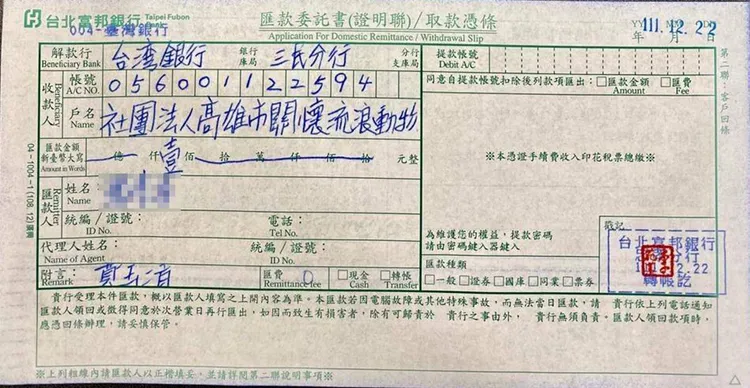 台北富邦銀行 Taipei Fubon Bank
004-臺灣銀行
匯款委託書(證明聯)/取款憑條
Application for Domestic Remittance / Withdrawal Slip
年 月 日
111.12.22
解款行 Beneficiary Bank 台湾銀行 銀行庫局 三民分行 分行支庫局
提款帳號 Debit A/C
收款人 Beneficiary
帳號 A/C NO. 056001122594
同意自提款帳號扣除後列款項匯出:□匯款金額 Amount □匯費 Fee
戶名 Name 社團法人高雄市關懷流浪動物
匯款金額 新臺幣大寫 Amount in Words 億 仟 壹 佰 拾 萬 仟 佰 拾 元整
※本憑證手續費收入印花稅票總繳※
匯款人 Remitter
姓名: Name
統編/證號: ID No. 電話: Tel No.
代理人姓名: Name of Agent 統編/證號: ID No.
為維護您的權益,提款密碼
請由密碼鍵入器鍵入
戳記
台北富邦銀行
12.22
轉帳訖
匯款種類
□一般 □證券 □國庫 □同業 □票券
附言: Remark 匯費 Remittance fee 0 □現金 Cash □轉帳 Transfer
貴行受理本件匯款,概以匯款人填寫之上開內容為準。本匯款若因電腦故障或其他特殊事故,而無法當日匯款,請 貴行依上列電話通知
匯款人領回或徵得同意於次營業日再行匯出,如因而致生有損害者,除有可歸責於 貴行之事由外, 貴行無須負責。匯款人領回款項時,
應憑回條辦理,請妥慎保管。
※上列粗線內請匯款人以正楷填妥,並請詳閱第二聯說明事項※
04-1004-1(108.12)
第二聯:客戶回條